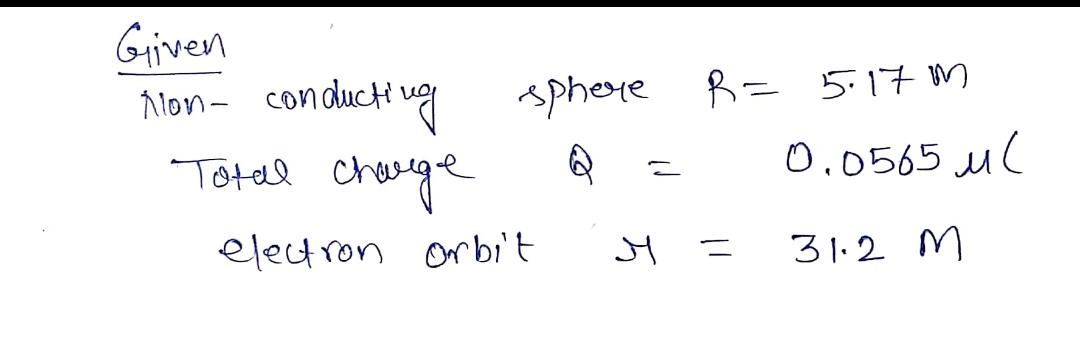 Given
Non- conducting sphere R = 5.17 m
Total charge Q = 0.0565 μC
electron orbit r = 31.2 m